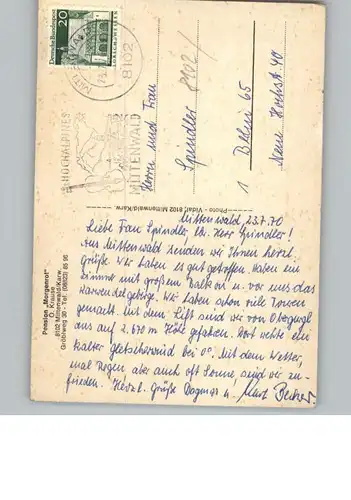 Deutsche Bundespost
20
LORSCH/HESSEN
8102
HOCHALPINES
MITTENWALD
Herrn und Frau
Spindler
1 Berlin 65
8102
Photo - Vidal, 8102 Mittenwald/Karw.
Pension "Morgenrot"
O. Krause
8102 Mittenwald/Karw.
Mittenwald, 23.7.70
Liebe Frau Spindler, lb. Herr Spindler!
Aus Mittenwald senden wir Ihnen herzl.
Grüße. Wir haben es gut getroffen. Haben ein
Zimmer mit großem Balkon u. vor uns das
Karwendelgebirge. Wir haben schon viele Touren
gemacht. Mit dem Lift sind wir von Obergurgl
aus auf 2.670 m Höhe gefahren. Dort wehte ein
kalter Gletscherwind bei 0°. Mit dem Wetter,
mal Regen aber auch oft Sonne, sind wir zu-
frieden. Herzl. Grüße Dagmar u. Becker